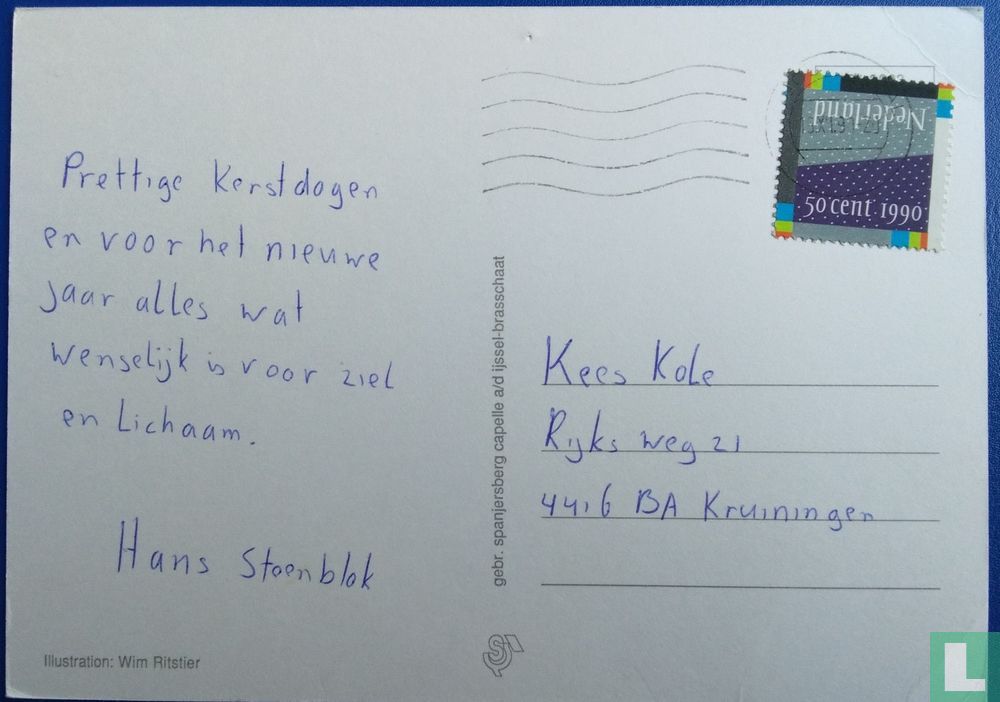 Prettige Kerstdagen
en voor het nieuwe
jaar alles wat
wenselijk is voor ziel
en Lichaam.
Hans Stoenblok
Illustration: Wim Ritstier
gebr. spanjersberg capelle a/d ijssel-brasschaat
Nederland
50 cent 1990
Kees Kole
Rijksweg 21
4416 BA Kruiningen
L